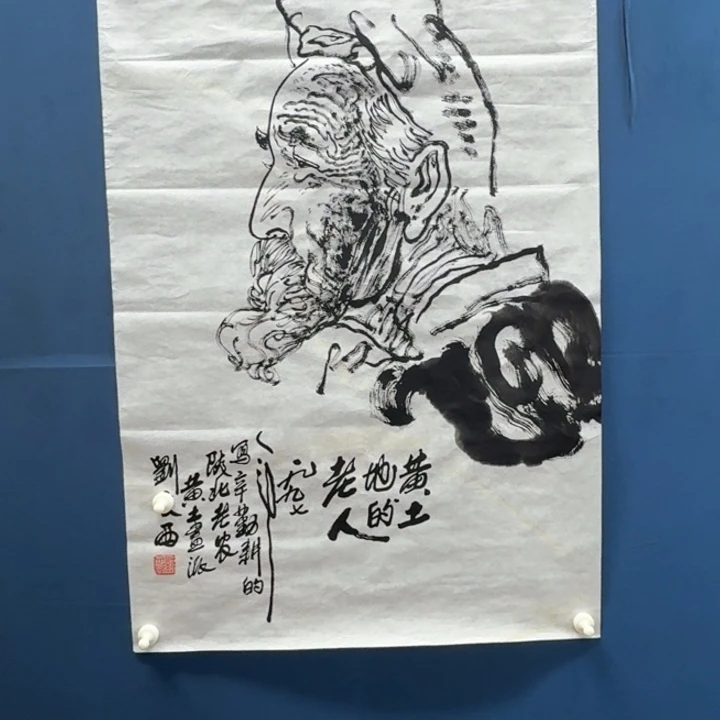 黄土
地的
老人
一九九七
写辛勤耕的
陕北老农
黄土画派
劉文西